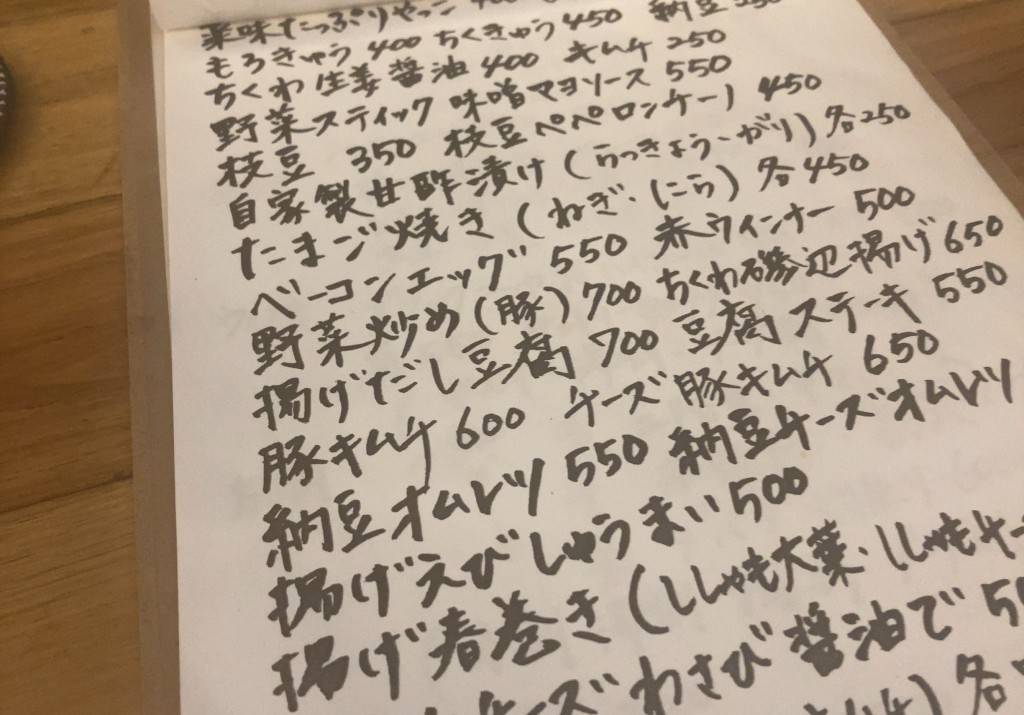 薬味たっぷりやっこ 400
もろきゅう 400 ちくきゅう 450 納豆
ちくわ生姜醤油 400 キムチ 250
野菜スティック 味噌マヨソース 550
枝豆 350 枝豆ペペロンチーノ 450
自家製甘酢漬け(らっきょう・がり)各250
たまご焼き(ねぎ・にら)各450
ベーコンエッグ 550 赤ウィンナー 500
野菜炒め(豚)700 ちくわ磯辺揚げ 650
揚げだし豆腐 700 豆腐ステーキ 550
豚キムチ 600 チーズ豚キムチ 650
納豆オムレツ 550 納豆チーズオムレツ
揚げえびしゅうまい 500
揚げ春巻き(ししゃも大葉・ししゃもチー
ーズわさび醤油で
ムチ)各